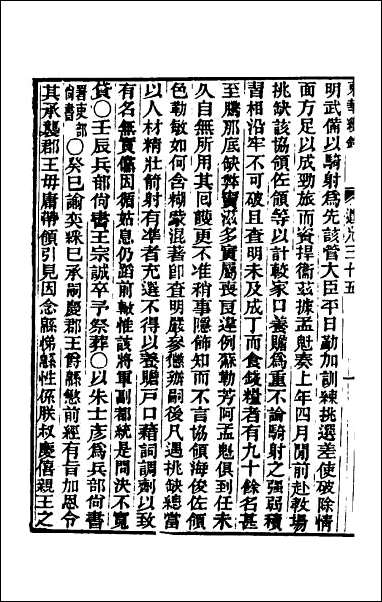 東華續錄　道光三十五
明武備以騎射為先該管大臣平日勤加訓練挑選差使破除情
面方足以成勁旅而資捍衞茲據孟魁奏上年四月閒前赴教場
挑缺該協領佐領等以計較家口養贍為重不論騎射之強弱積
習相沿牢不可破且查明未及成丁而食錢糧者有九十餘名甚
至騰那底缺弊竇滋多實屬喪良違例蘇勒芳阿孟魁俱到任未
久自無所用其囘護更不准稍事隱飾知而不言協領海俊佐領
色勒敏如何含糊蒙混著即查明嚴參懲辦嗣後凡遇挑缺總當
以人材精壯箭射有準者充選不得以養贍戶口藉詞調劑以致
有名無實儻因循姑息仍蹈前轍惟該將軍副都統是問決不寬
貸○壬辰兵部尙書王宗誠卒予祭葬○以朱士彥為兵部尙書
署吏部尙書○癸巳諭奕綵已承嗣慶郡王爵緜慜前經有旨加恩令
其承襲郡王毋庸帶領引見因念緜悌緜性係朕叔慶僖親王之